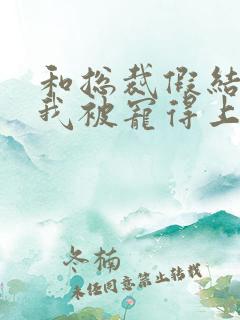 和总裁假结
我被宠得上
冬楠
未经同意禁止转载